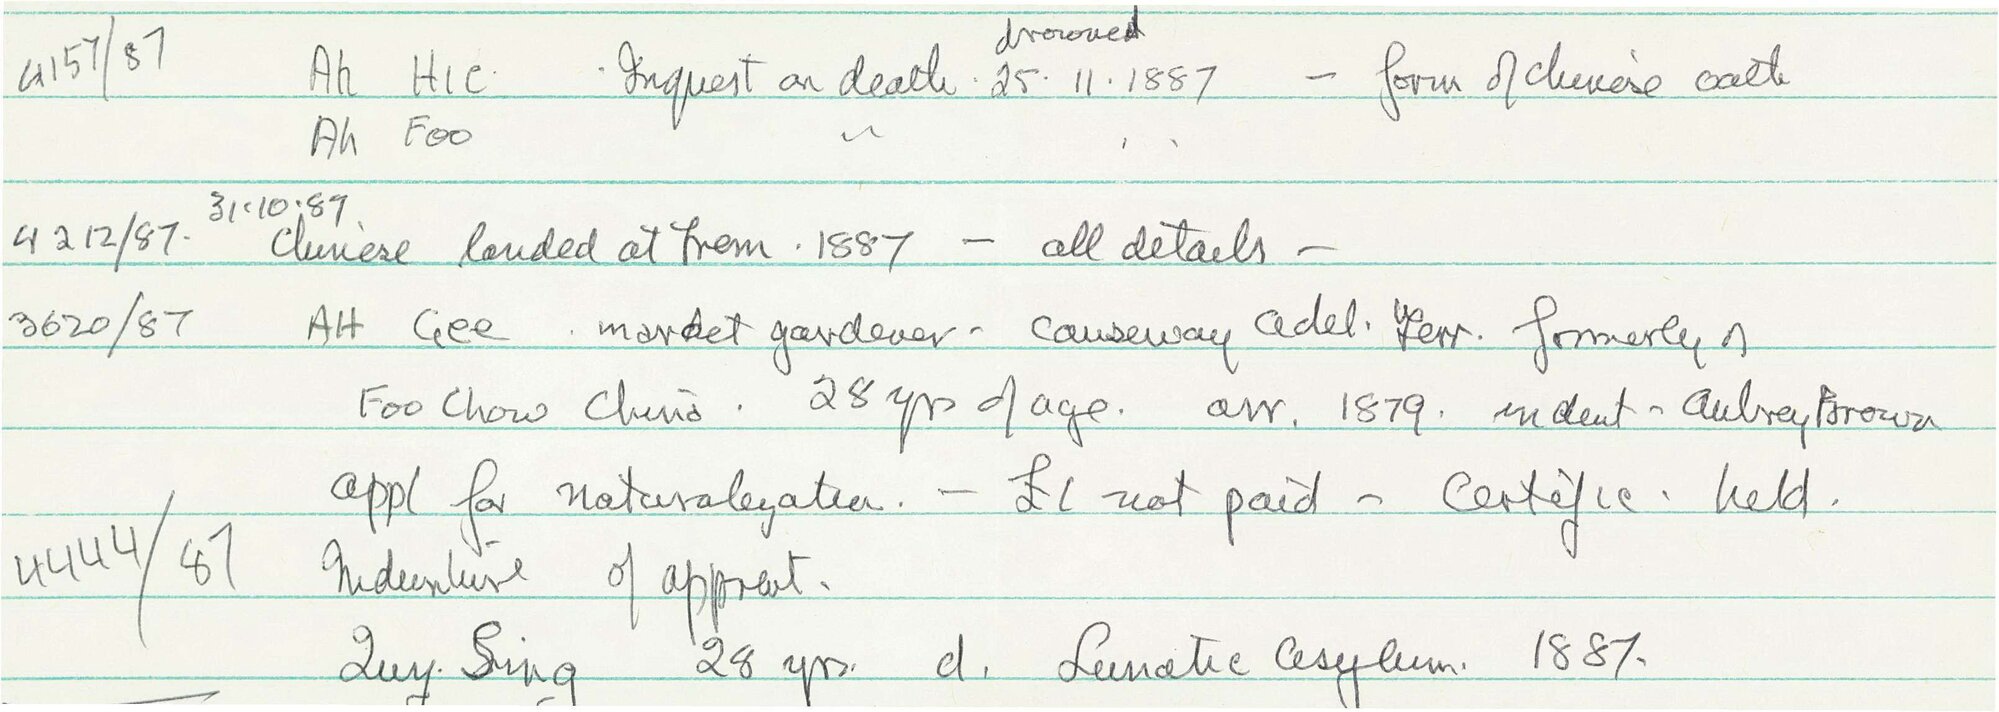 drowned
4157/87 Ah Hic. Inquest on death. 25.11.1887 - form of Chinese oath
Ah Foo " " "
31.10.87.
4212/87. Chinese landed at Frem. 1887 - all details -
3620/87 AH Gee. market gardener - Causeway Adel. Terr. formerly of
Foo Chow China. 28 yrs of age. arr. 1879. indent - Aubrey Brown
appl for naturalization. - £1 not paid - Certific. held.
4444/87 Indenture of apprent.
Quy. Sing 28 yrs. d. Lunatic Asylum. 1887.